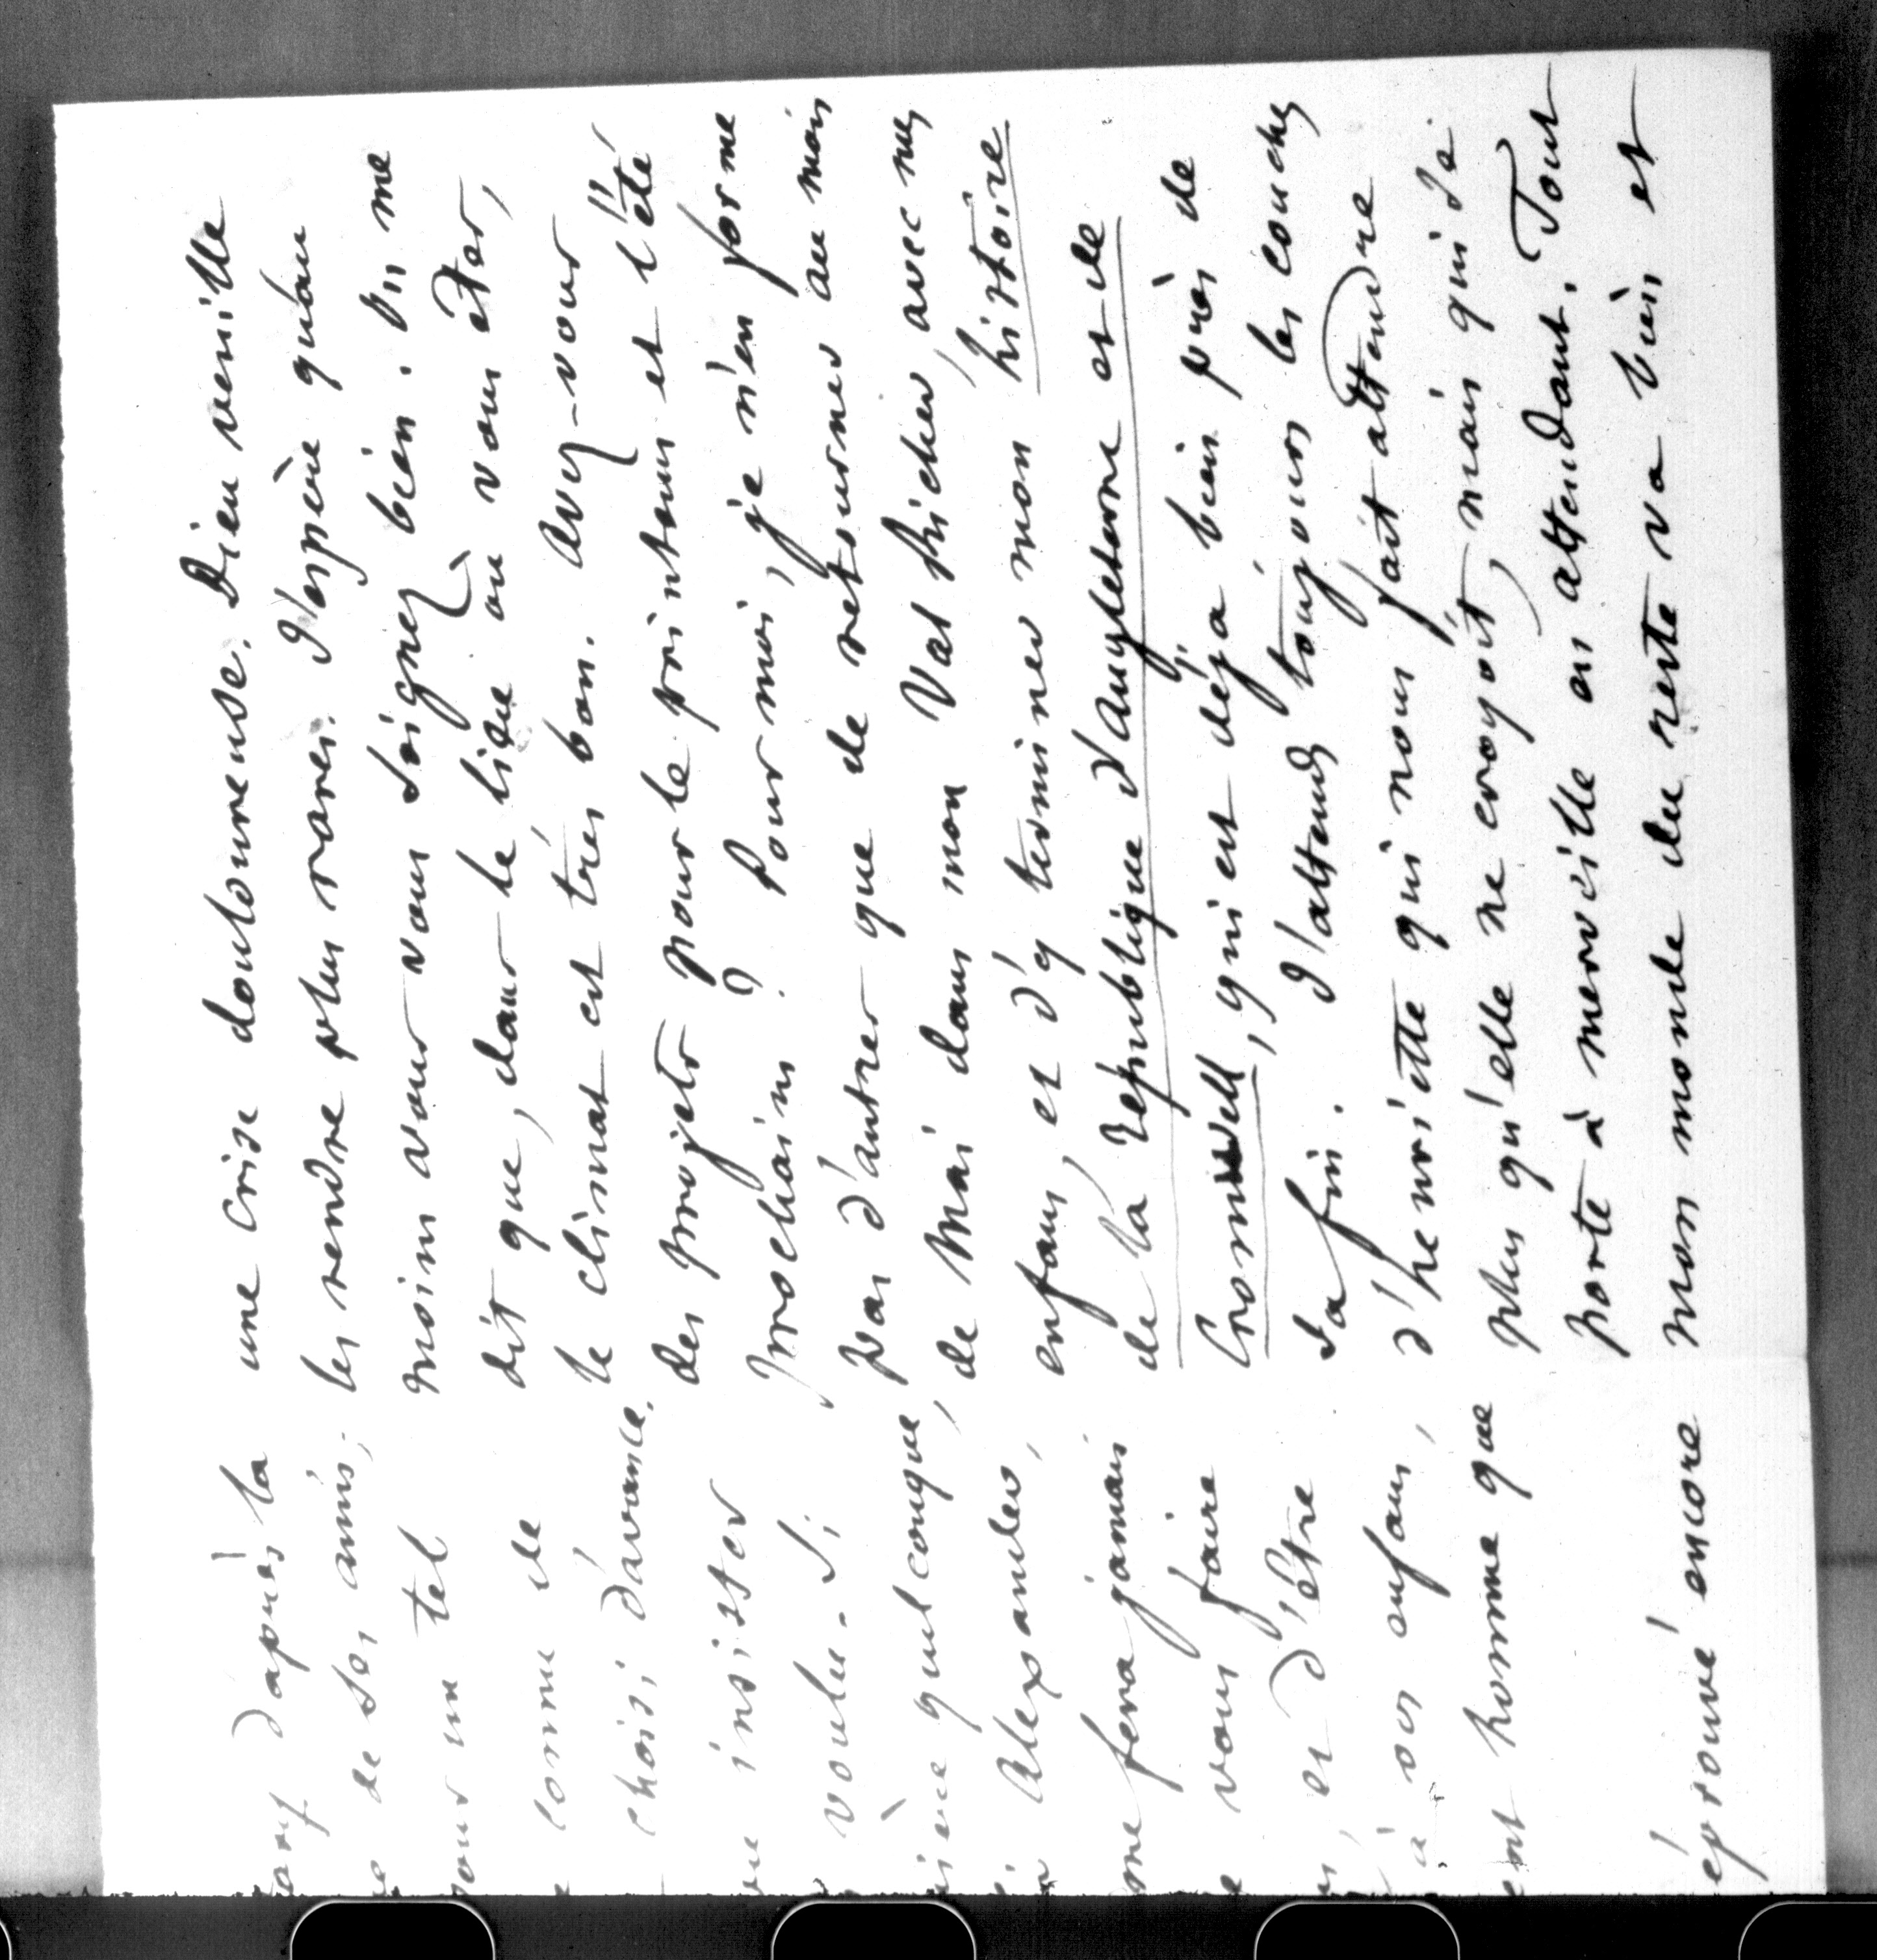 d'après la
de ses amis;
pour un tel
comme de
choisi d'avance.
insister
voulu. Si
quelconque,
Alexandre,
me fera jamais
vous faire
et d'être
à vos enfans,
homme que
éprouvé encore
une crise douloureuse. Dieu veuille
les rendre plus rares. J'espère qu'au
moins vous vous soignez bien. On me
dit que, dans le lieu où vous êtes,
le climat est très bon. Avez-vous
des projets pour le printems et l'été
prochains ? Pour moi, je n'en forme
pas d'autres que de retourner au mois
de Mai dans mon Val Richer, avec mes
enfans, et d'y terminer mon histoire
de la République d'Angleterre et de
Cromwell, qui est déjà bien près de
sa fin. J'attends toujours les couches
d'henriette qui nous fait attendre
plus qu'elle ne croyoit, mais qui se
porte à merveille en attendant. Tout
mon monde du reste va bien et